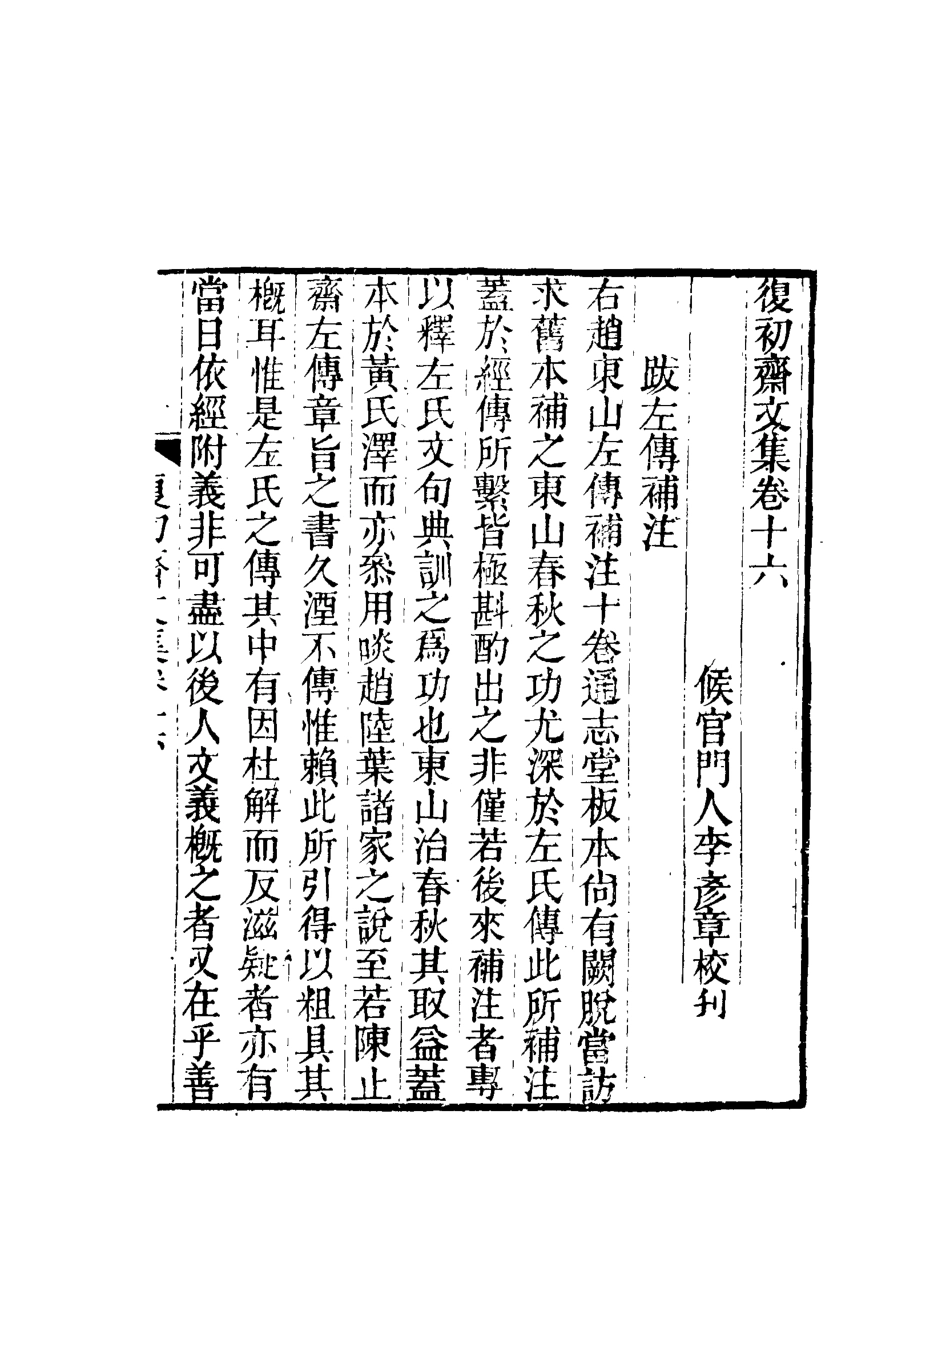 復初齋文集卷十六
候官門人李彥章校刋
跋左傳補注
右趙東山左傳補注十卷通志堂板本尙有闕脫當訪
求舊本補之東山春秋之功尤深於左氏傳此所補注
蓋於經傳所繫皆極斟酌出之非僅若後來補注者專
以釋左氏文句典訓之爲功也東山治春秋其取益蓋
本於黃氏澤而亦叅用啖趙陸葉諸家之說至若陳止
齋左傳章旨之書久湮不傳惟賴此所引得以粗具其
槪耳惟是左氏之傳其中有因杜解而反滋疑者亦有
當日依經附義非可盡以後人文義槪之者又在乎善
復初齋文集卷十六